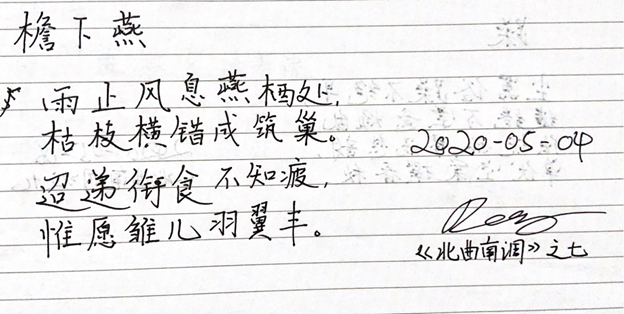 檐下燕
雨止风息燕栖处，
枯枝横错成筑巢。
迢递衔食不知疲，
惟愿雏儿羽翼丰。
2020-05-04
《北曲南调》之七